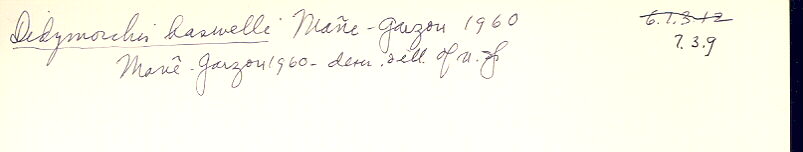 Didymorchis haswelli Mañe-Garzon 1960
6.1.3.12
7.3.9
Mañe-Garzon 1960- descr. & ill. of n. sp